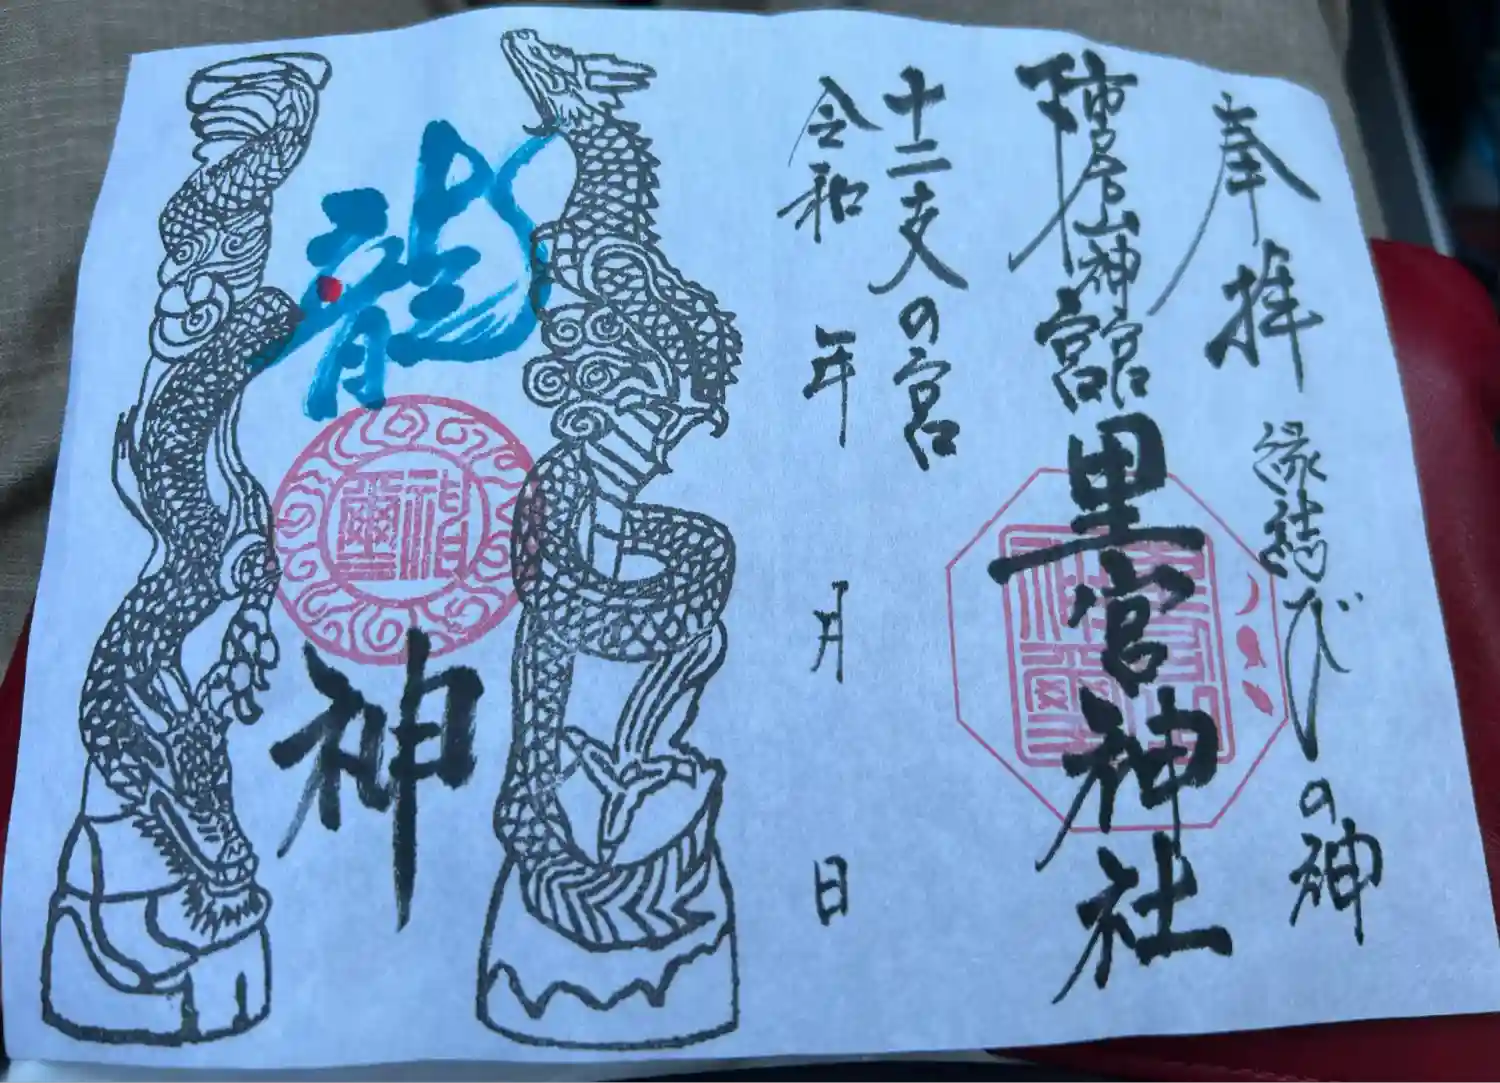 奉拝
縁結びの神
山神宮
里宮神社
十二支の宮
令和 年 月 日
龍神